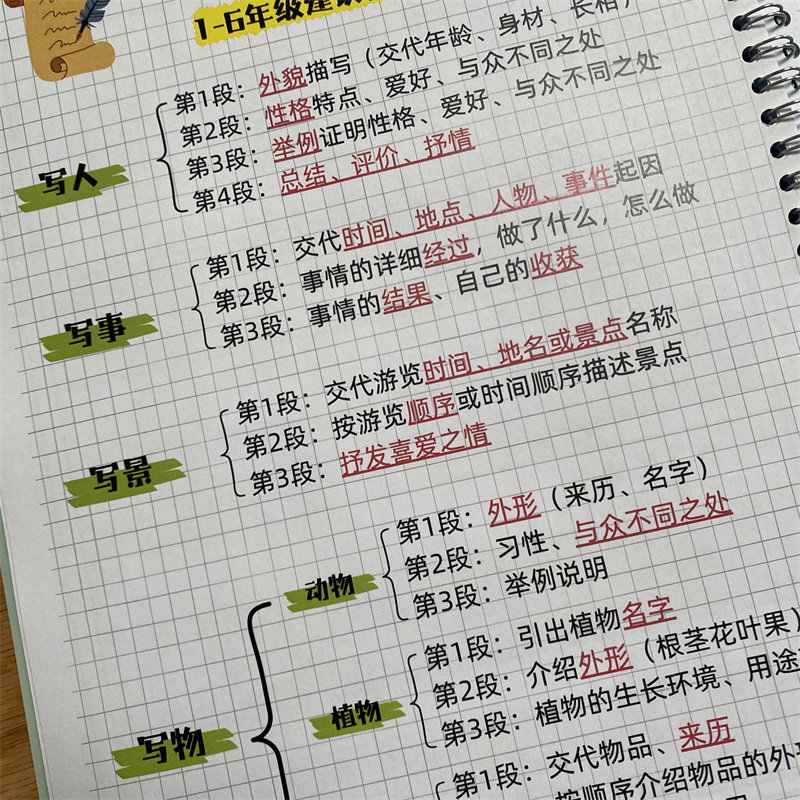 1-6年级建议
写人
第1段：外貌描写（交代年龄、身材、长相）
第2段：性格特点、爱好、与众不同之处
第3段：举例证明性格、爱好、与众不同之处
第4段：总结、评价、抒情
写事
第1段：交代时间、地点、人物、事件起因
第2段：事情的详细经过，做了什么，怎么做
第3段：事情的结果、自己的收获
写景
第1段：交代游览时间、地名或景点名称
第2段：按游览顺序或时间顺序描述景点
第3段：抒发喜爱之情
写物
动物
第1段：外形（来历、名字）
第2段：习性、与众不同之处
第3段：举例说明
植物
第1段：引出植物名字
第2段：介绍外形（根茎花叶果）
第3段：植物的生长环境、用途
第1段：交代物品、来历
按顺序介绍物品的外形